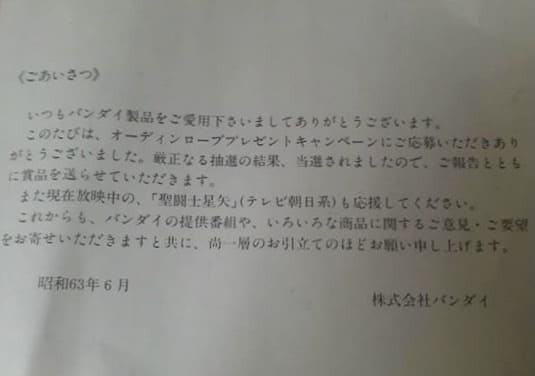 《ごあいさつ》
いつもバンダイ製品をご愛用下さいましてありがとうございます。
このたびは、オーディンローブプレゼントキャンペーンにご応募いただきあり
がとうございました。厳正なる抽選の結果、当選されましたので、ご報告ととも
に賞品を送らせていただきます。
また現在放映中の、「聖闘士星矢」(テレビ朝日系)も応援してください。
これからも、バンダイの提供番組や、いろいろな商品に関するご意見・ご要望
をお寄せいただきますと共に、尚一層のお引立てのほどお願い申し上げます。
昭和63年6月
株式会社バンダイ